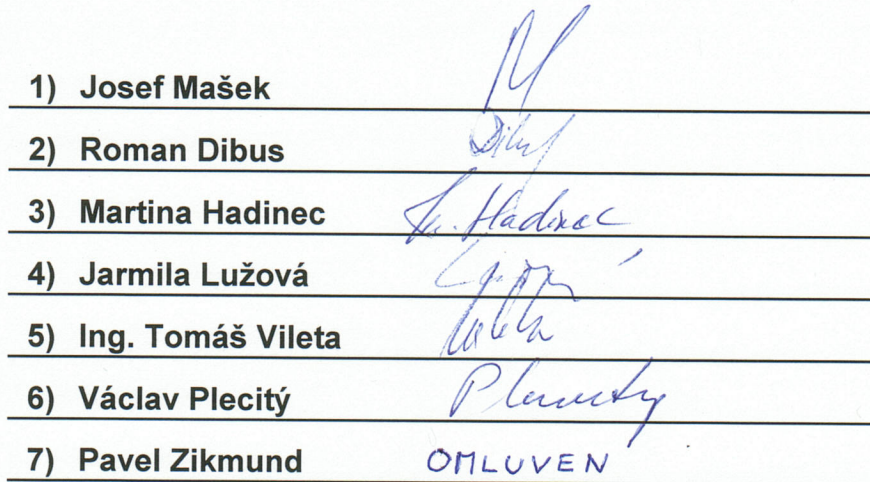 1) Josef Mašek
2) Roman Dibus
3) Martina Hadinec Hadinec
4) Jarmila Lužová
5) Ing. Tomáš Vileta Vileta
6) Václav Plecitý
7) Pavel Zikmund OMLUVEN